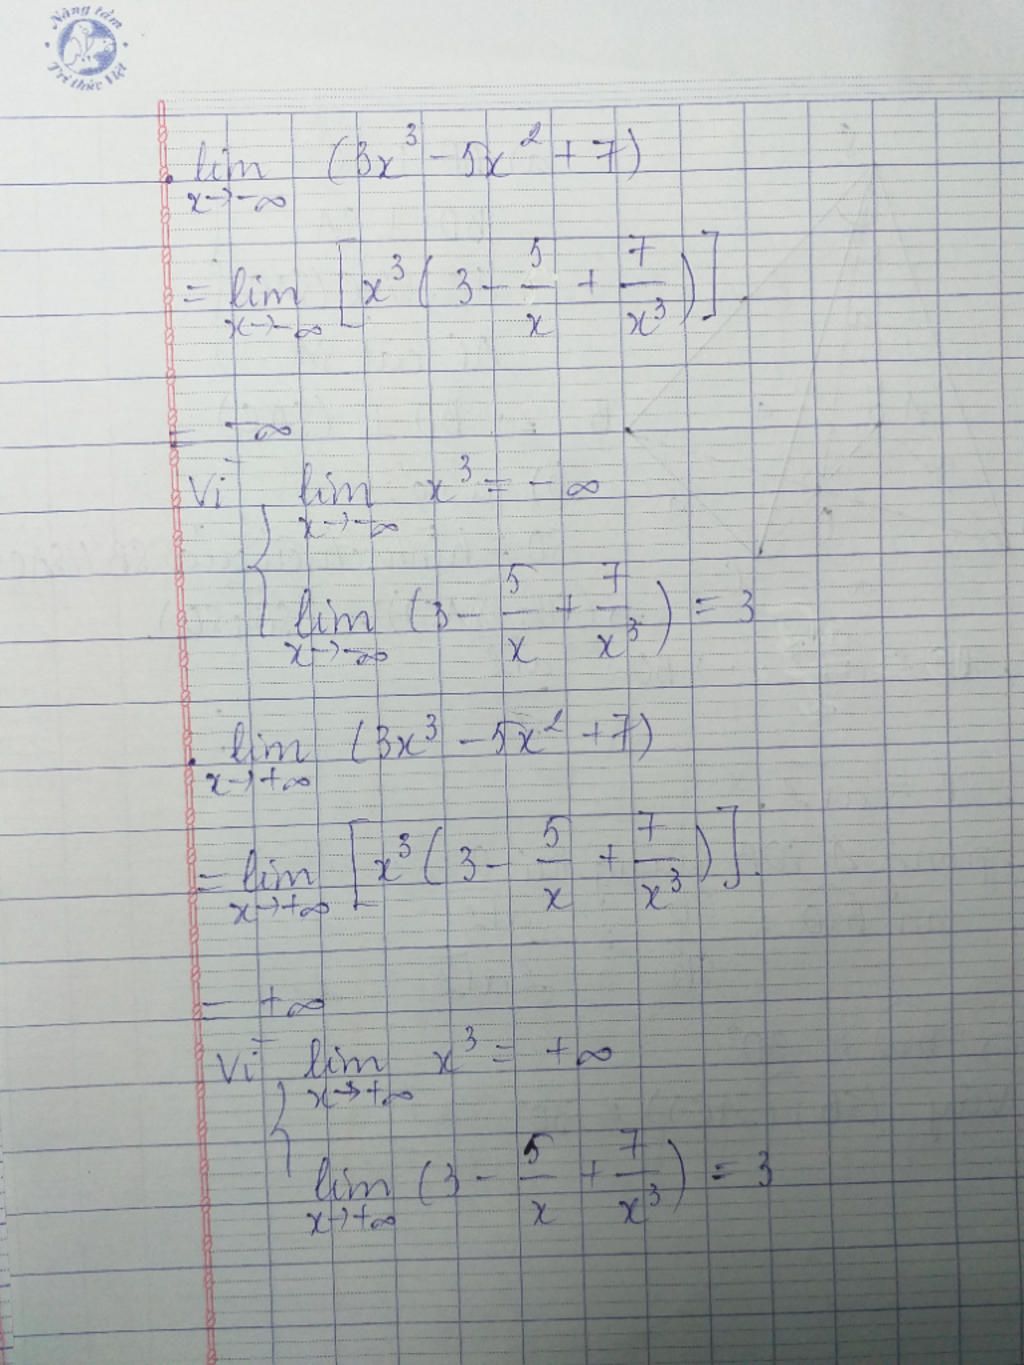 Nâng tầm
Tri thức Việt
lim (3x³ - 5x² + 7)
x→-∞
= lim [x³(3 - 5/x + 7/x³)]
x→-∞
= -∞
Vì lim x³ = -∞
x→-∞
lim (3 - 5/x + 7/x³) = 3
x→-∞
lim (3x³ - 5x² + 7)
x→+∞
= lim [x³(3 - 5/x + 7/x³)]
x→+∞
= +∞
Vì lim x³ = +∞
x→+∞
lim (3 - 5/x + 7/x³) = 3
x→+∞